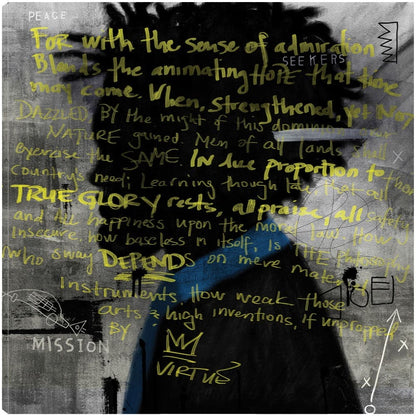 PEACE
FOR with the sense of admiration
SEEKERS
Blends the animating HOPE that time
may come, When, strengthened, yet not
DAZZLED BY the might of this dominion our
NATURE gained. Men of all lands shall
exercise the SAME. IN due proportion to the
country's need; Learning though late that all
TRUE GLORY rests, all praise, all safety
and the happiness upon the moral law. How
Insecure, how baseless in itself, is THE Philosophy
who sway DEPENDS on mere
Instruments, How weak those
arts & high inventions, if unpropped
BY
MISSION
VIRTUE